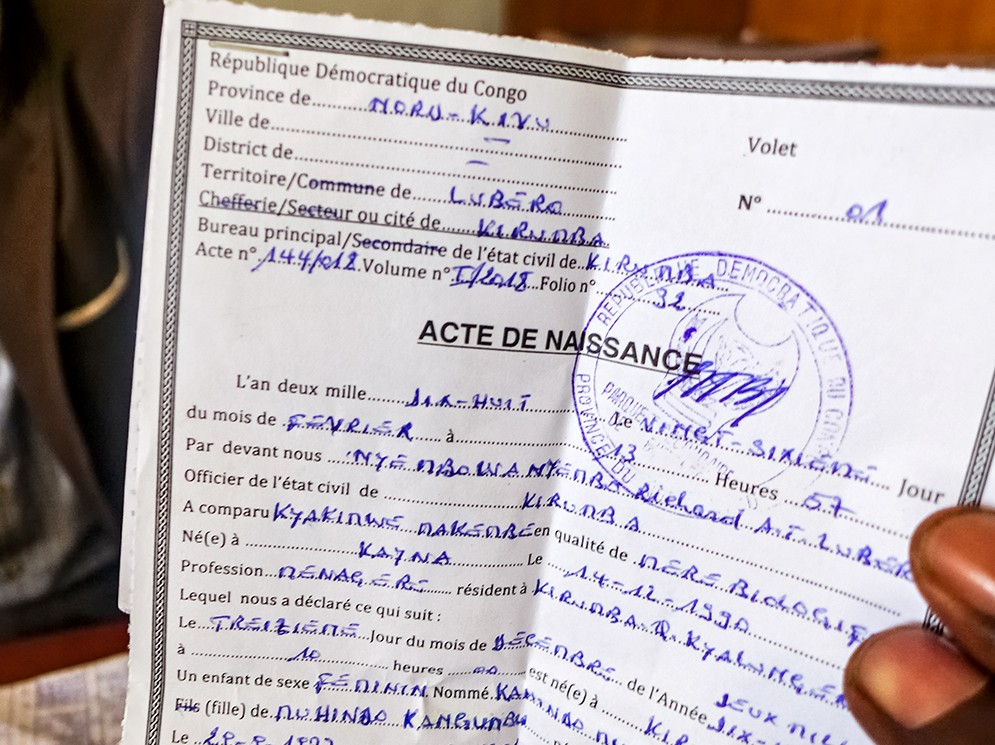 République Démocratique du Congo
Province de NORD-KIVU
Ville de —
District de —
Territoire/Commune de LUBERO
Chefferie/Secteur ou cité de KIRUMBA
Bureau principal/Secondaire de l'état civil de KIRUMBA
Acte n° 144/018 Volume n° I/2018 Folio n° 32
Volet
N° 01
REPUBLIQUE DEMOCRATIQUE DU CONGO
PROVINCE DU
ACTE DE NAISSANCE
L'an deux mille DIX-HUIT Le VINGT-SIXIEME Jour
du mois de FEVRIER à 13 Heures 57
Par devant nous Richard
Officier de l'état civil de KIRUMBA
A comparu KYAKIMWE en qualité de MERE BIOLOGIQUE
Né(e) à KAYNA Le 14-12-1990
Profession MENAGERE résident à KIRUMBA
Lequel nous a déclaré ce qui suit :
Le TREIZIEME Jour du mois de DECEMBRE de l'Année DEUX
à 10 heures 00 est né(e) à
Un enfant de sexe FEMININ Nommé
Fils (fille) de MUHINDO
Le